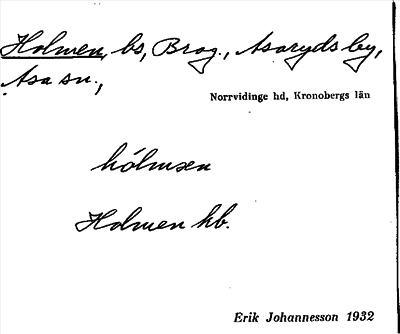 Holmen, bs, Brog., Asaryds by,
Asa sn.,
Norrvidinge hd, Kronobergs län
hólmen
Holmen hb.
Erik Johannesson 1932